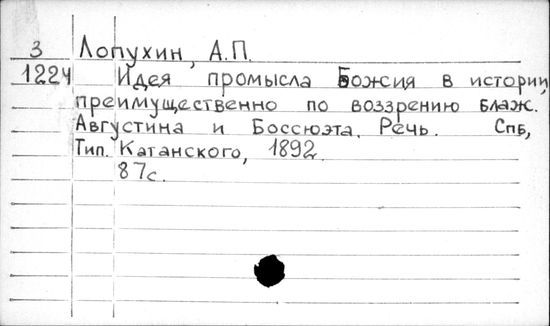 3 Лопухин, А.П.
1224 Идея промысла Божия в истории,
преимущественно по воззрению блаж.
Августина и Боссюэта. Речь. Спб,
Тип. Катанского, 1892.
87с.